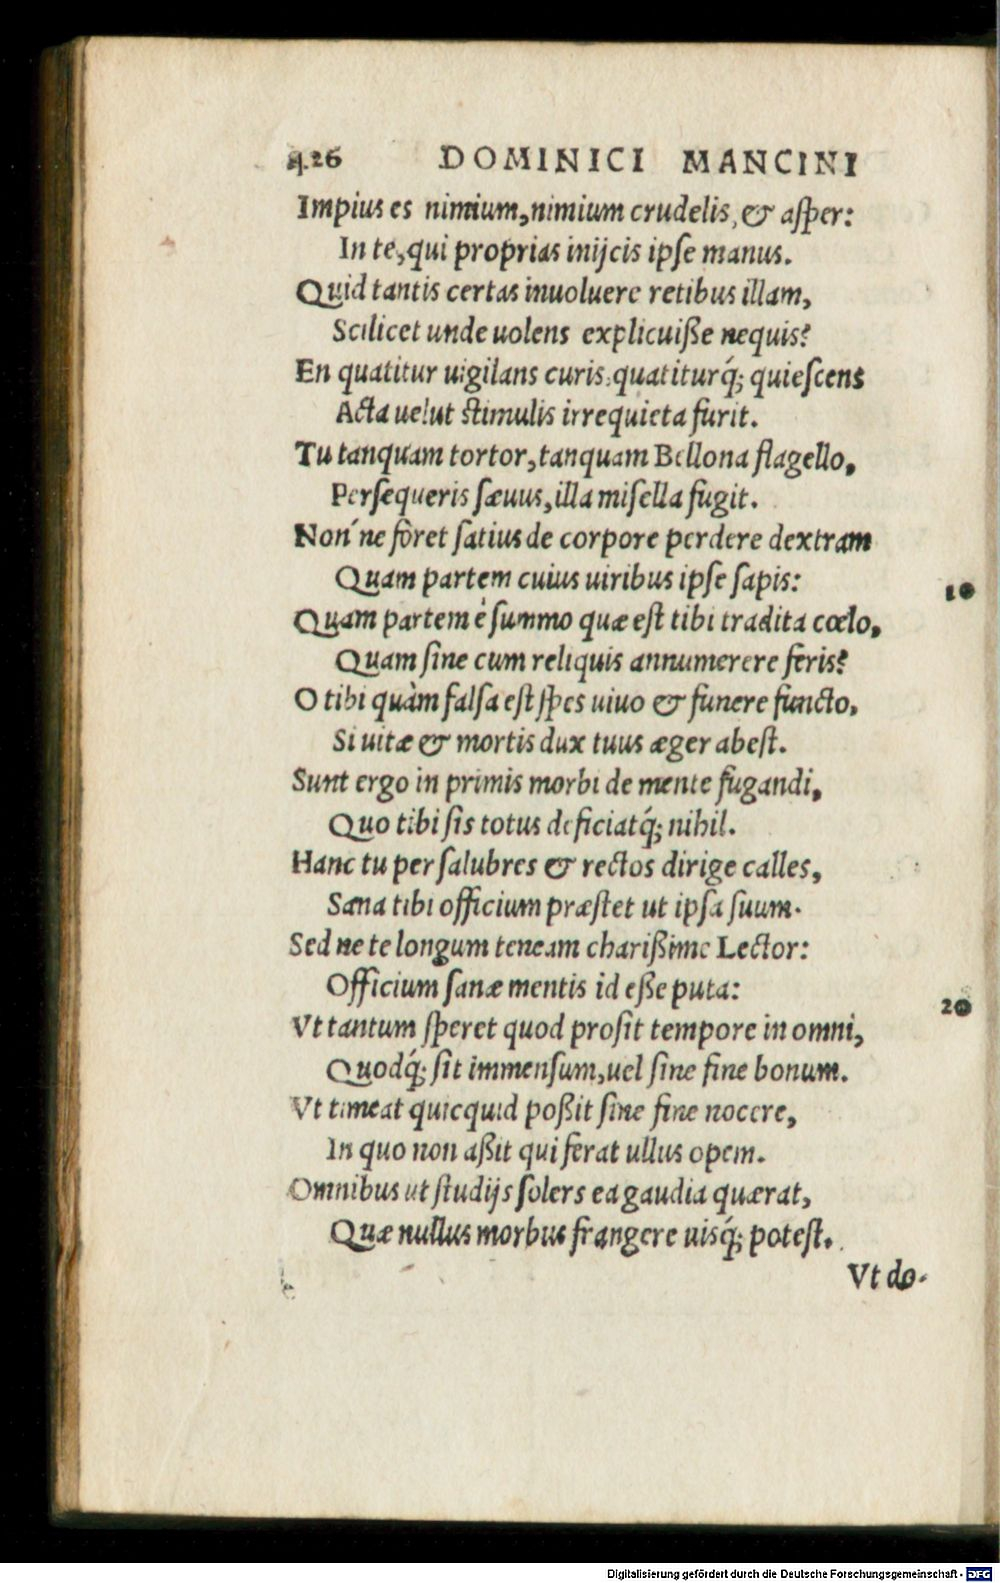 426 DOMINICI MANCINI
Impius es nimium, nimium crudelis, & asper:
In te, qui proprias inijcis ipse manus.
Quid tantis certas inuoluere retibus illam,
Scilicet unde uolens explicuiße nequis?
En quatitur uigilans curis, quatiturq́; quiescens
Acta uelut stimulis irrequieta furit.
Tu tanquam tortor, tanquam Bellona flagello,
Persequeris sæuus, illa misella fugit.
Non´ne foret satius de corpore perdere dextram
Quam partem cuius uiribus ipse sapis:
10
Quam partem è summo quæ est tibi tradita cœlo,
Quam sine cum reliquis annumerere feris?
O tibi quàm falsa est spes uiuo & funere functo,
Si uitæ & mortis dux tuus æger abest.
Sunt ergo in primis morbi de mente fugandi,
Quo tibi sis totus deficiatq́; nihil.
Hanc tu per salubres & rectos dirige calles,
Sana tibi officium præstet ut ipsa suum.
Sed ne te longum teneam charißime Lector:
Officium sanæ mentis id eße puta:
20
Vt tantum speret quod prosit tempore in omni,
Quodq́; sit immensum, uel sine fine bonum.
Vt timeat quicquid poßit sine fine nocere,
In quo non aßit qui ferat ullus opem.
Omnibus ut studijs solers ea gaudia quærat,
Quæ nullus morbus frangere uisq́; potest.
Vt do-
Digitalisierung gefördert durch die Deutsche Forschungsgemeinschaft - DFG